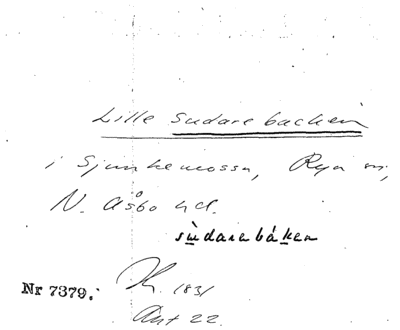 Lille Sudare backen
i Sjunkemossa, Rya sn,
N. Åsbo hd.
sùdarabáken
Nr 7379. 1831
Akt 22